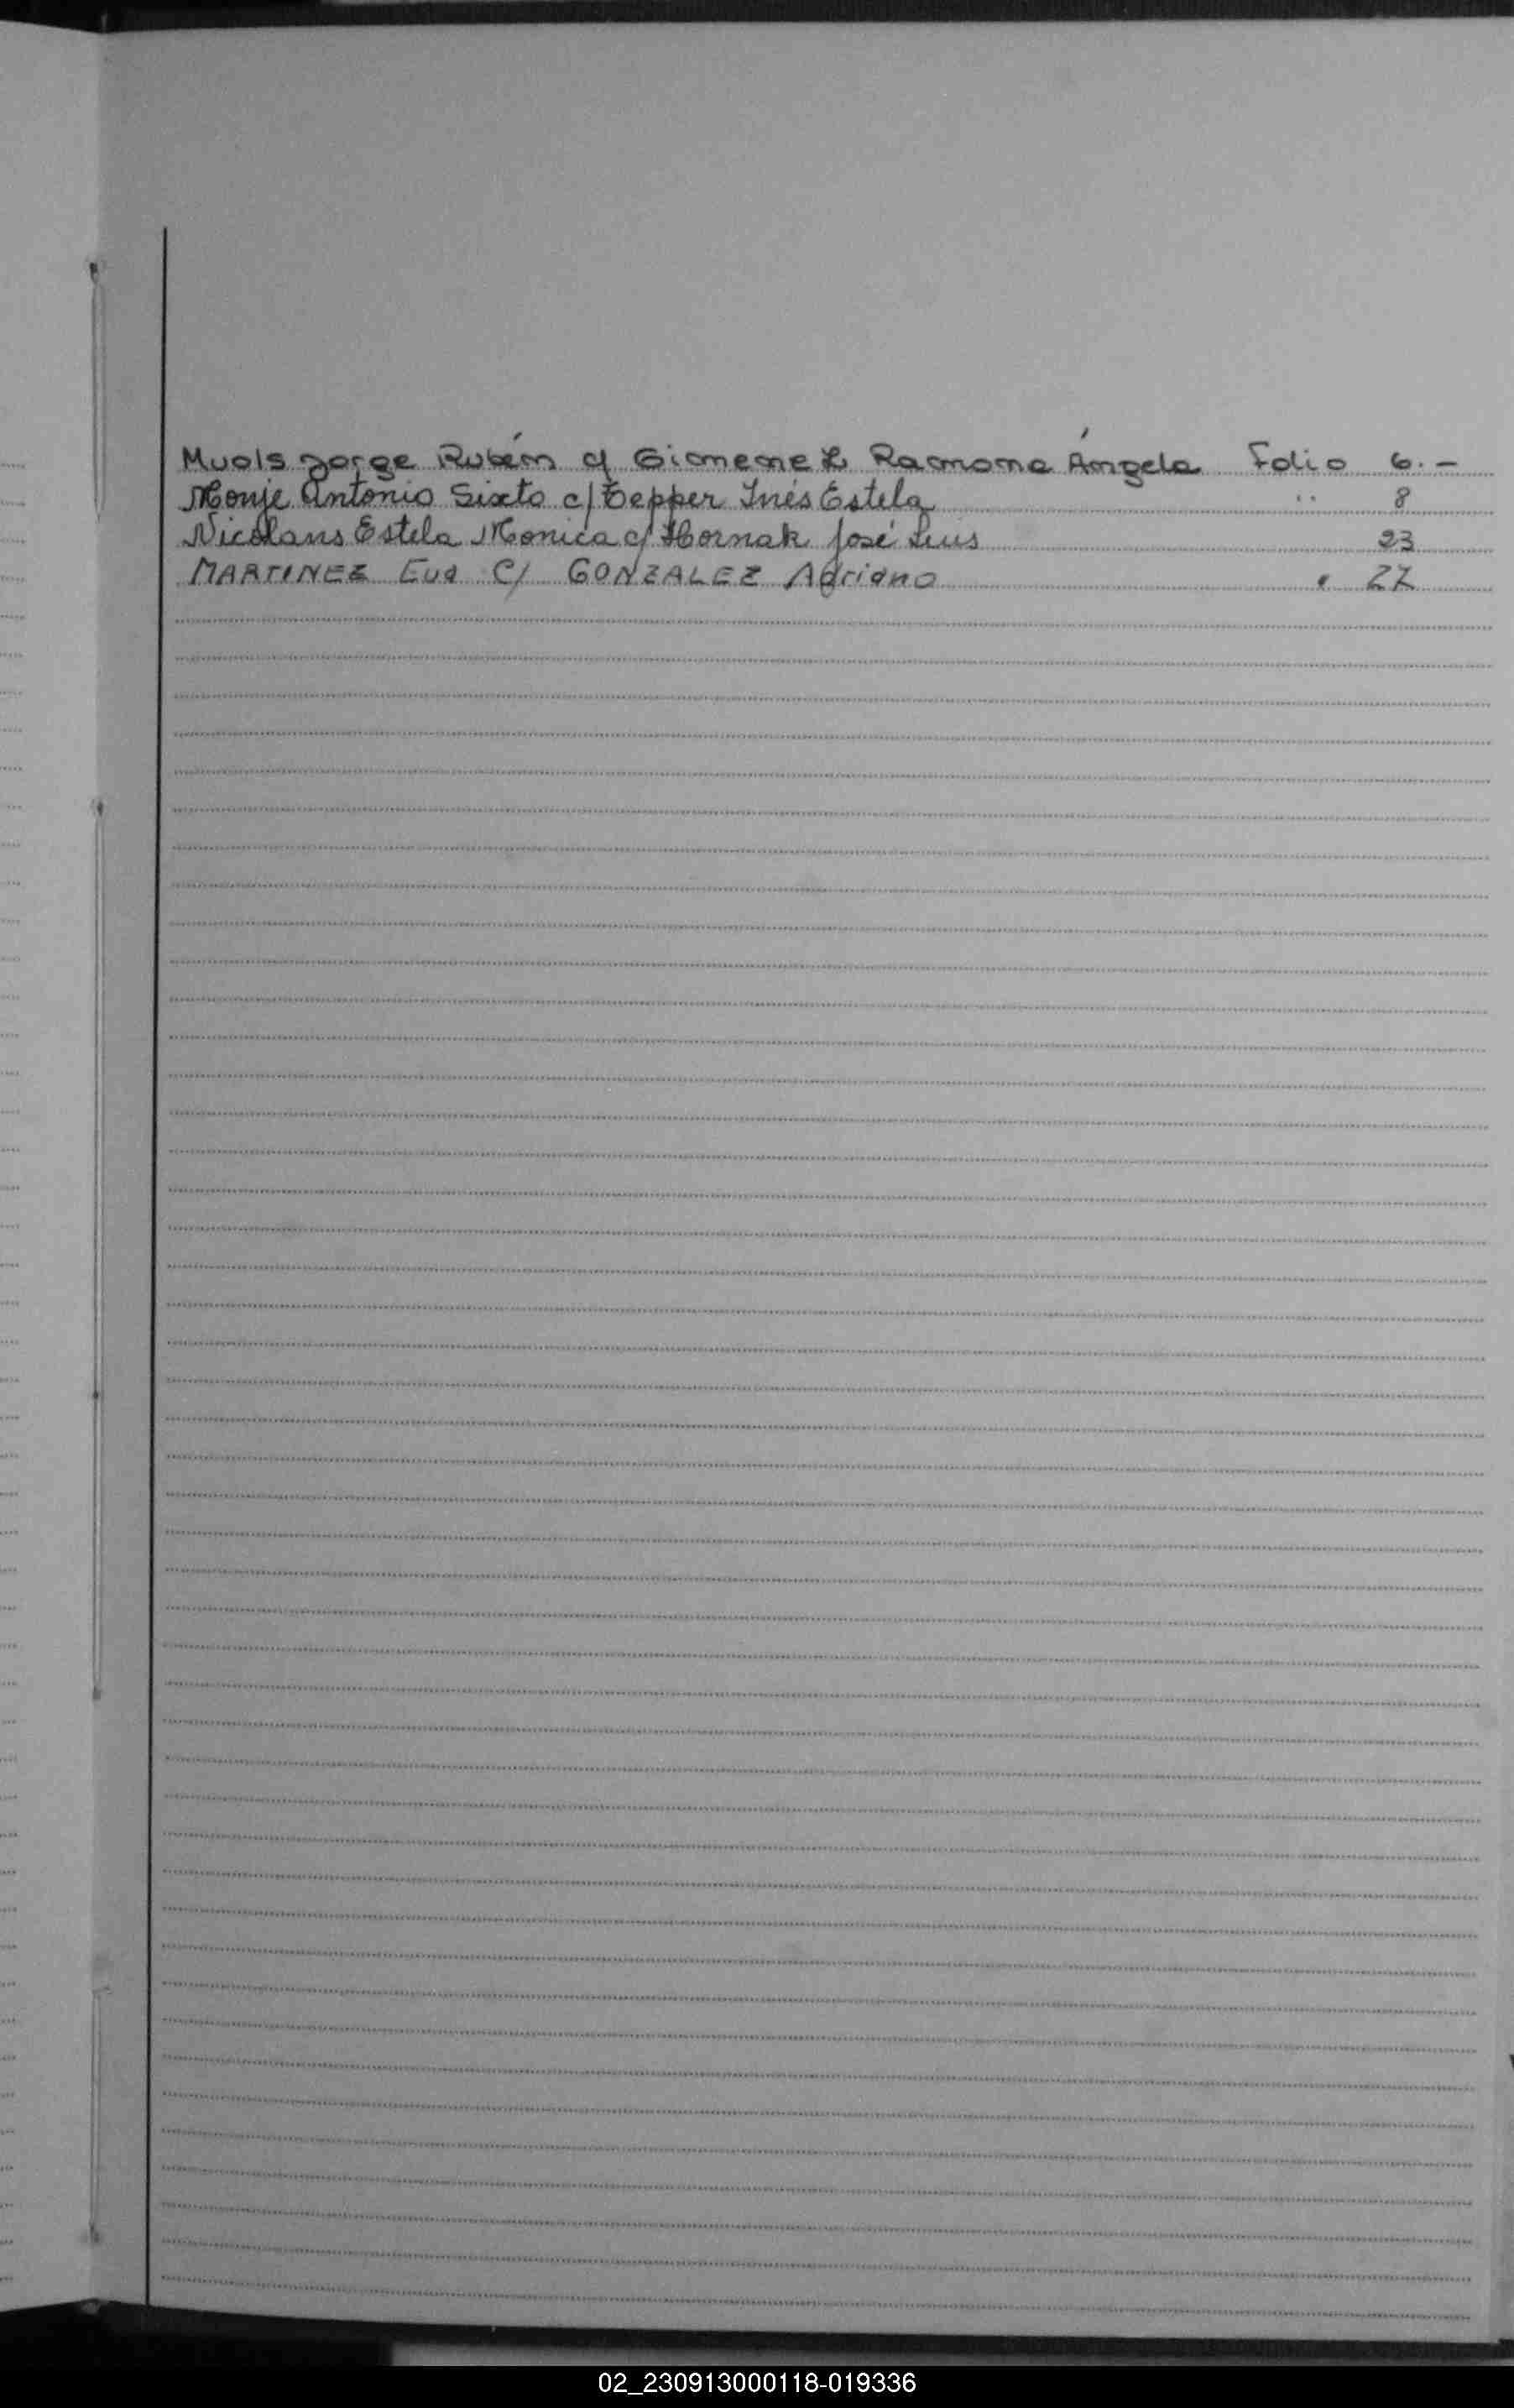 Muols Jorge Rubén c/ Gimenez Ramona Ángela Folio 6.-
Monje Antonio Sixto c/ Tepper Inés Estela " 8
Nicolaus Estela Monica c/ Hornak José Luis 23
MARTINEZ Eva C/ GONZALEZ Adriano " 27
02_230913000118-019336